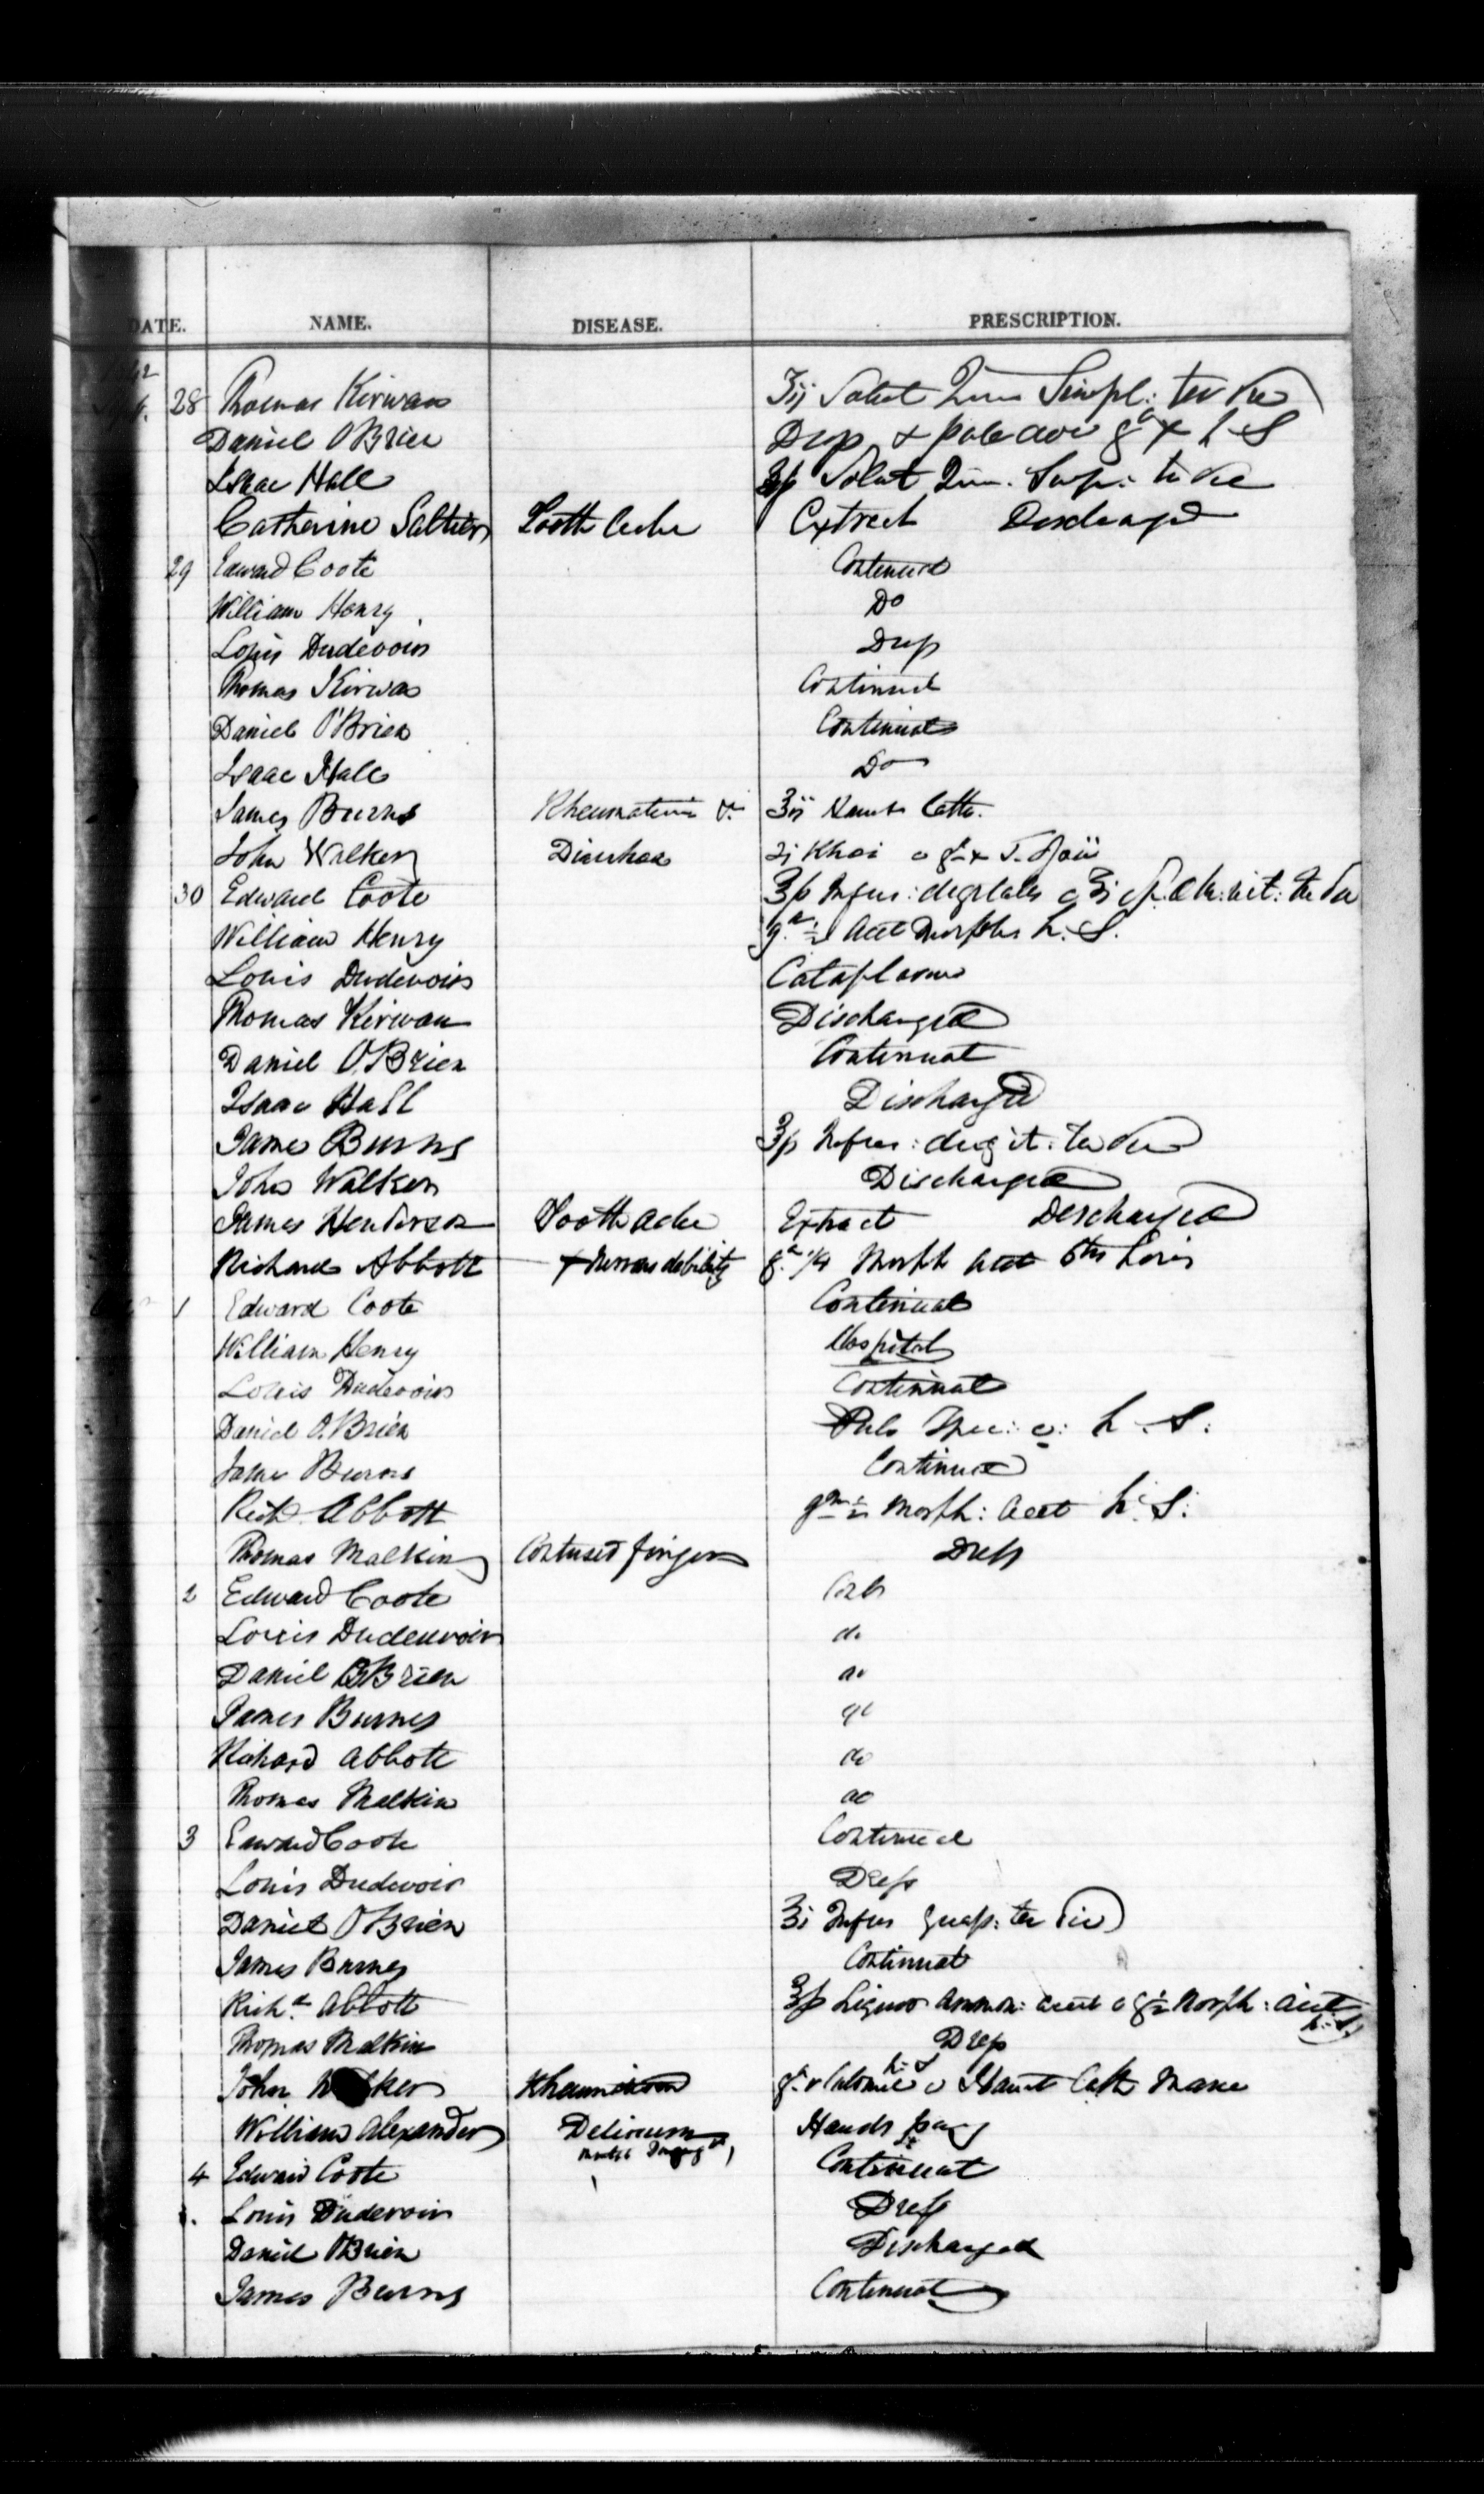 DATE. NAME. DISEASE. PRESCRIPTION.
28 Thomas Kirwan ʒij Solut Simpl: ter die
Daniel O'Brien Dress & h S
Isaac Hall Solut ter die
Catherine Tooth Ache Extract Discharged
29 Edward Coote Continued
William Henry Do
Louis Dudevoir Dress
Thomas Kirwan Continued
Daniel O'Brien Continued
Isaac Hall Do
James Burns Rheumatism ʒij Haust Cath.
John Walker Diarrhoea
30 Edward Coote Infus: digitalis
William Henry Acet Morphia h. S.
Louis Dudevoir Cataplasm
Thomas Kirwan Discharged
Daniel O'Brien Continued
Isaac Hall Discharged
James Burns Infus: digit: ter die
John Walker Discharged
James Henderson Tooth ache Extract Discharged
Richard Abbott + Nervous debility gr 1/4 Morph Acet
1 Edward Coote Continued
William Henry Hospital
Louis Dudevoir Continued
Daniel O'Brien h. S.
James Burns Continued
Rich Abbott Morph: Acet h. S.
Thomas Malkin Contused finger Dress
2 Edward Coote Cont
Louis Dudevoir do
Daniel O'Brien do
James Burns do
Richard Abbott do
Thomas Malkin do
3 Edward Coote Continued
Louis Dudevoir Dress
Daniel O'Brien ʒi Infus ter die
James Burns Continued
Richd Abbott Liquor Ammon: acet Morph: acet h. S.
Thomas Malkin Dress
h. S
John Walker Haust Cath Mane
William Alexander Delirium
4 Edward Coote Continued
Louis Dudevoir Dress
Daniel O'Brien Discharged
James Burns Continued